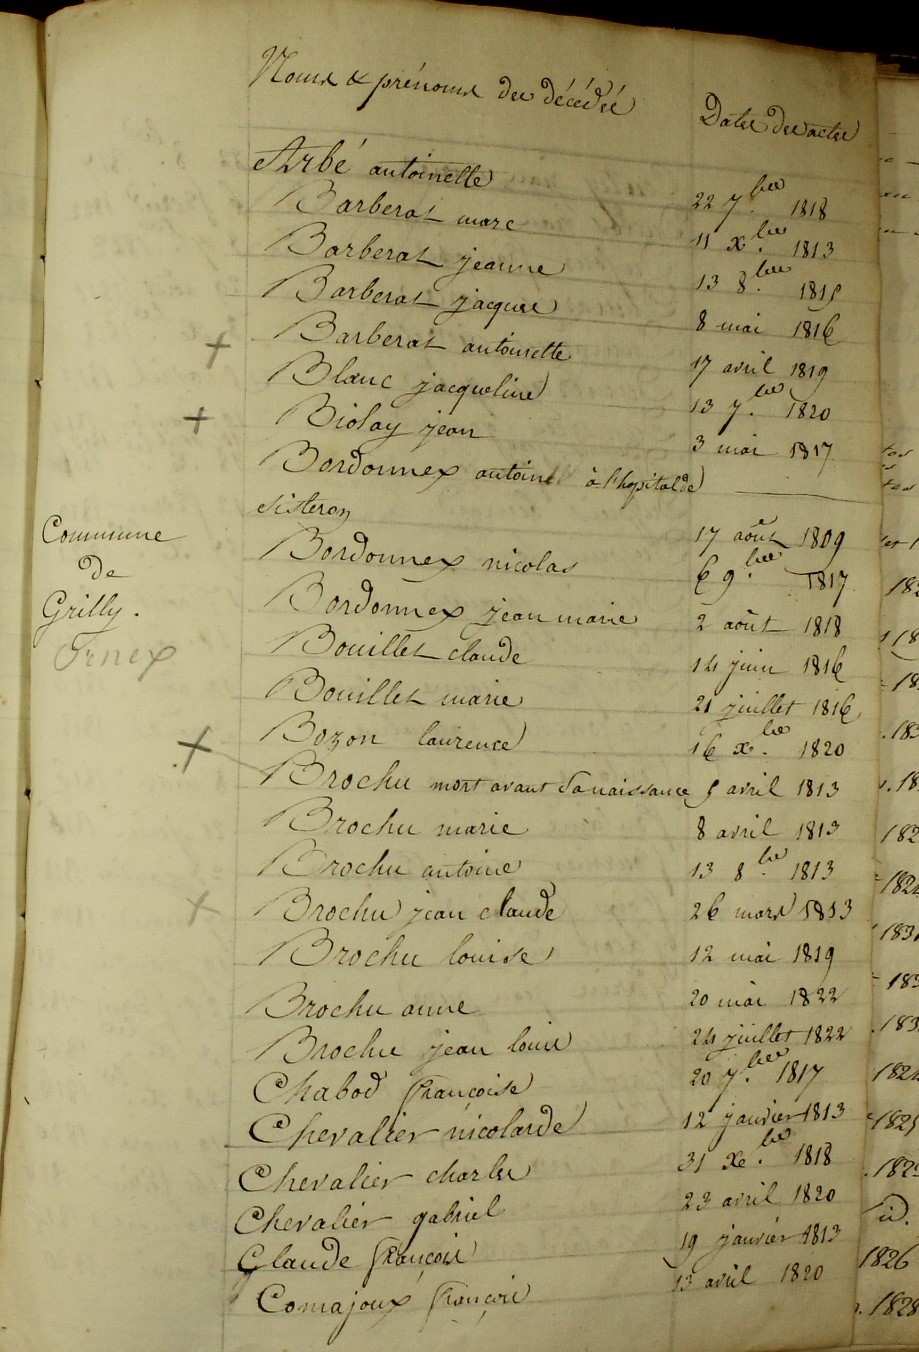 Noms & prénoms des décédés Dates des actes
Arbé antoinette 22 7.bre 1818
Barberat marc 11 x.bre 1813
Barberat jeanne 13 8.bre 1815
Barberat jacques 8 mai 1816
Barberat antoinette 17 avril 1819
Blanc jacqueline 13 7.bre 1820
Biolay jean 3 mai 1817
Bordonnex antoine à l'hopital de
sisteron 17 août 1809
Bordonnex nicolas 6 9.bre 1817
Bordonnex jean marie 2 août 1818
Bouillet claude 14 juin 1816
Bouillet marie 21 juillet 1816
Bozon laurence 16 x.bre 1820
Brochu mort avant sa naissance 5 avril 1813
Brochu marie 8 avril 1813
Brochu antoine 13 8.bre 1813
Brochu jean claude 26 mars 1813
Brochu louise 12 mai 1819
Brochu anne 20 mai 1822
Brochu jean louis 24 juillet 1822
Chabod françoise 20 7.bre 1817
Chevalier nicolarde 12 janvier 1813
Chevalier charles 31 xe.bre 1818
Chevalier gabriel 23 avril 1820
Claude françois 19 janvier 1813
Comajoux françois 13 avril 1820
Commune
de
Grilly.
Ornex